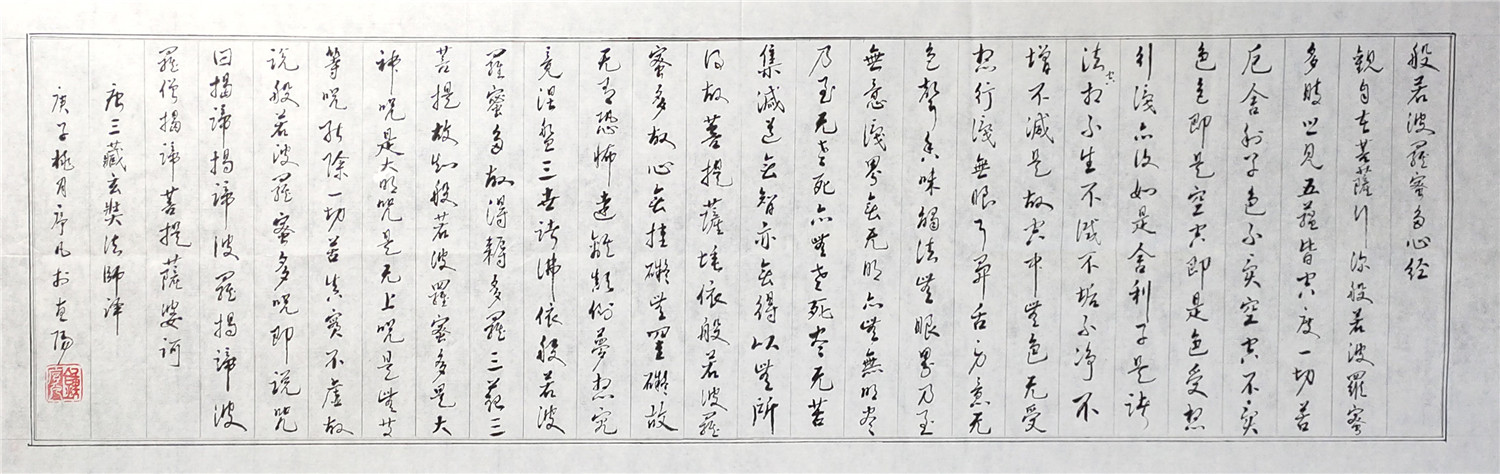 般若波羅蜜多心经
觀自在菩薩行深般若波羅蜜
多时照见五蕴皆空度一切苦
厄舍利子色不异空空不异
色色即是空空即是色受想
行識亦復如是舍利子是诸
法空相不生不滅不垢不净不
增不減是故空中無色无受
想行識無眼耳鼻舌身意无
色聲香味觸法無眼界乃至
無意識界無无明亦無無明尽
乃至无老死亦無老死尽无苦
集滅道無智亦無得以無所
得故菩提薩埵依般若波羅
蜜多故心無挂礙無罣礙故
无有恐怖遠離顛倒夢想究
竟涅盤三世诸佛依般若波
羅蜜多故得耨多羅三藐三
菩提故知般若波羅蜜多是大
神咒是大明咒是无上咒是無等
等咒能除一切苦真實不虛故
说般若波羅蜜多咒即说咒
曰揭諦揭諦波羅揭諦波
羅僧揭諦菩提薩婆訶
唐三藏玄奘法師译
庚子桃月序凡於